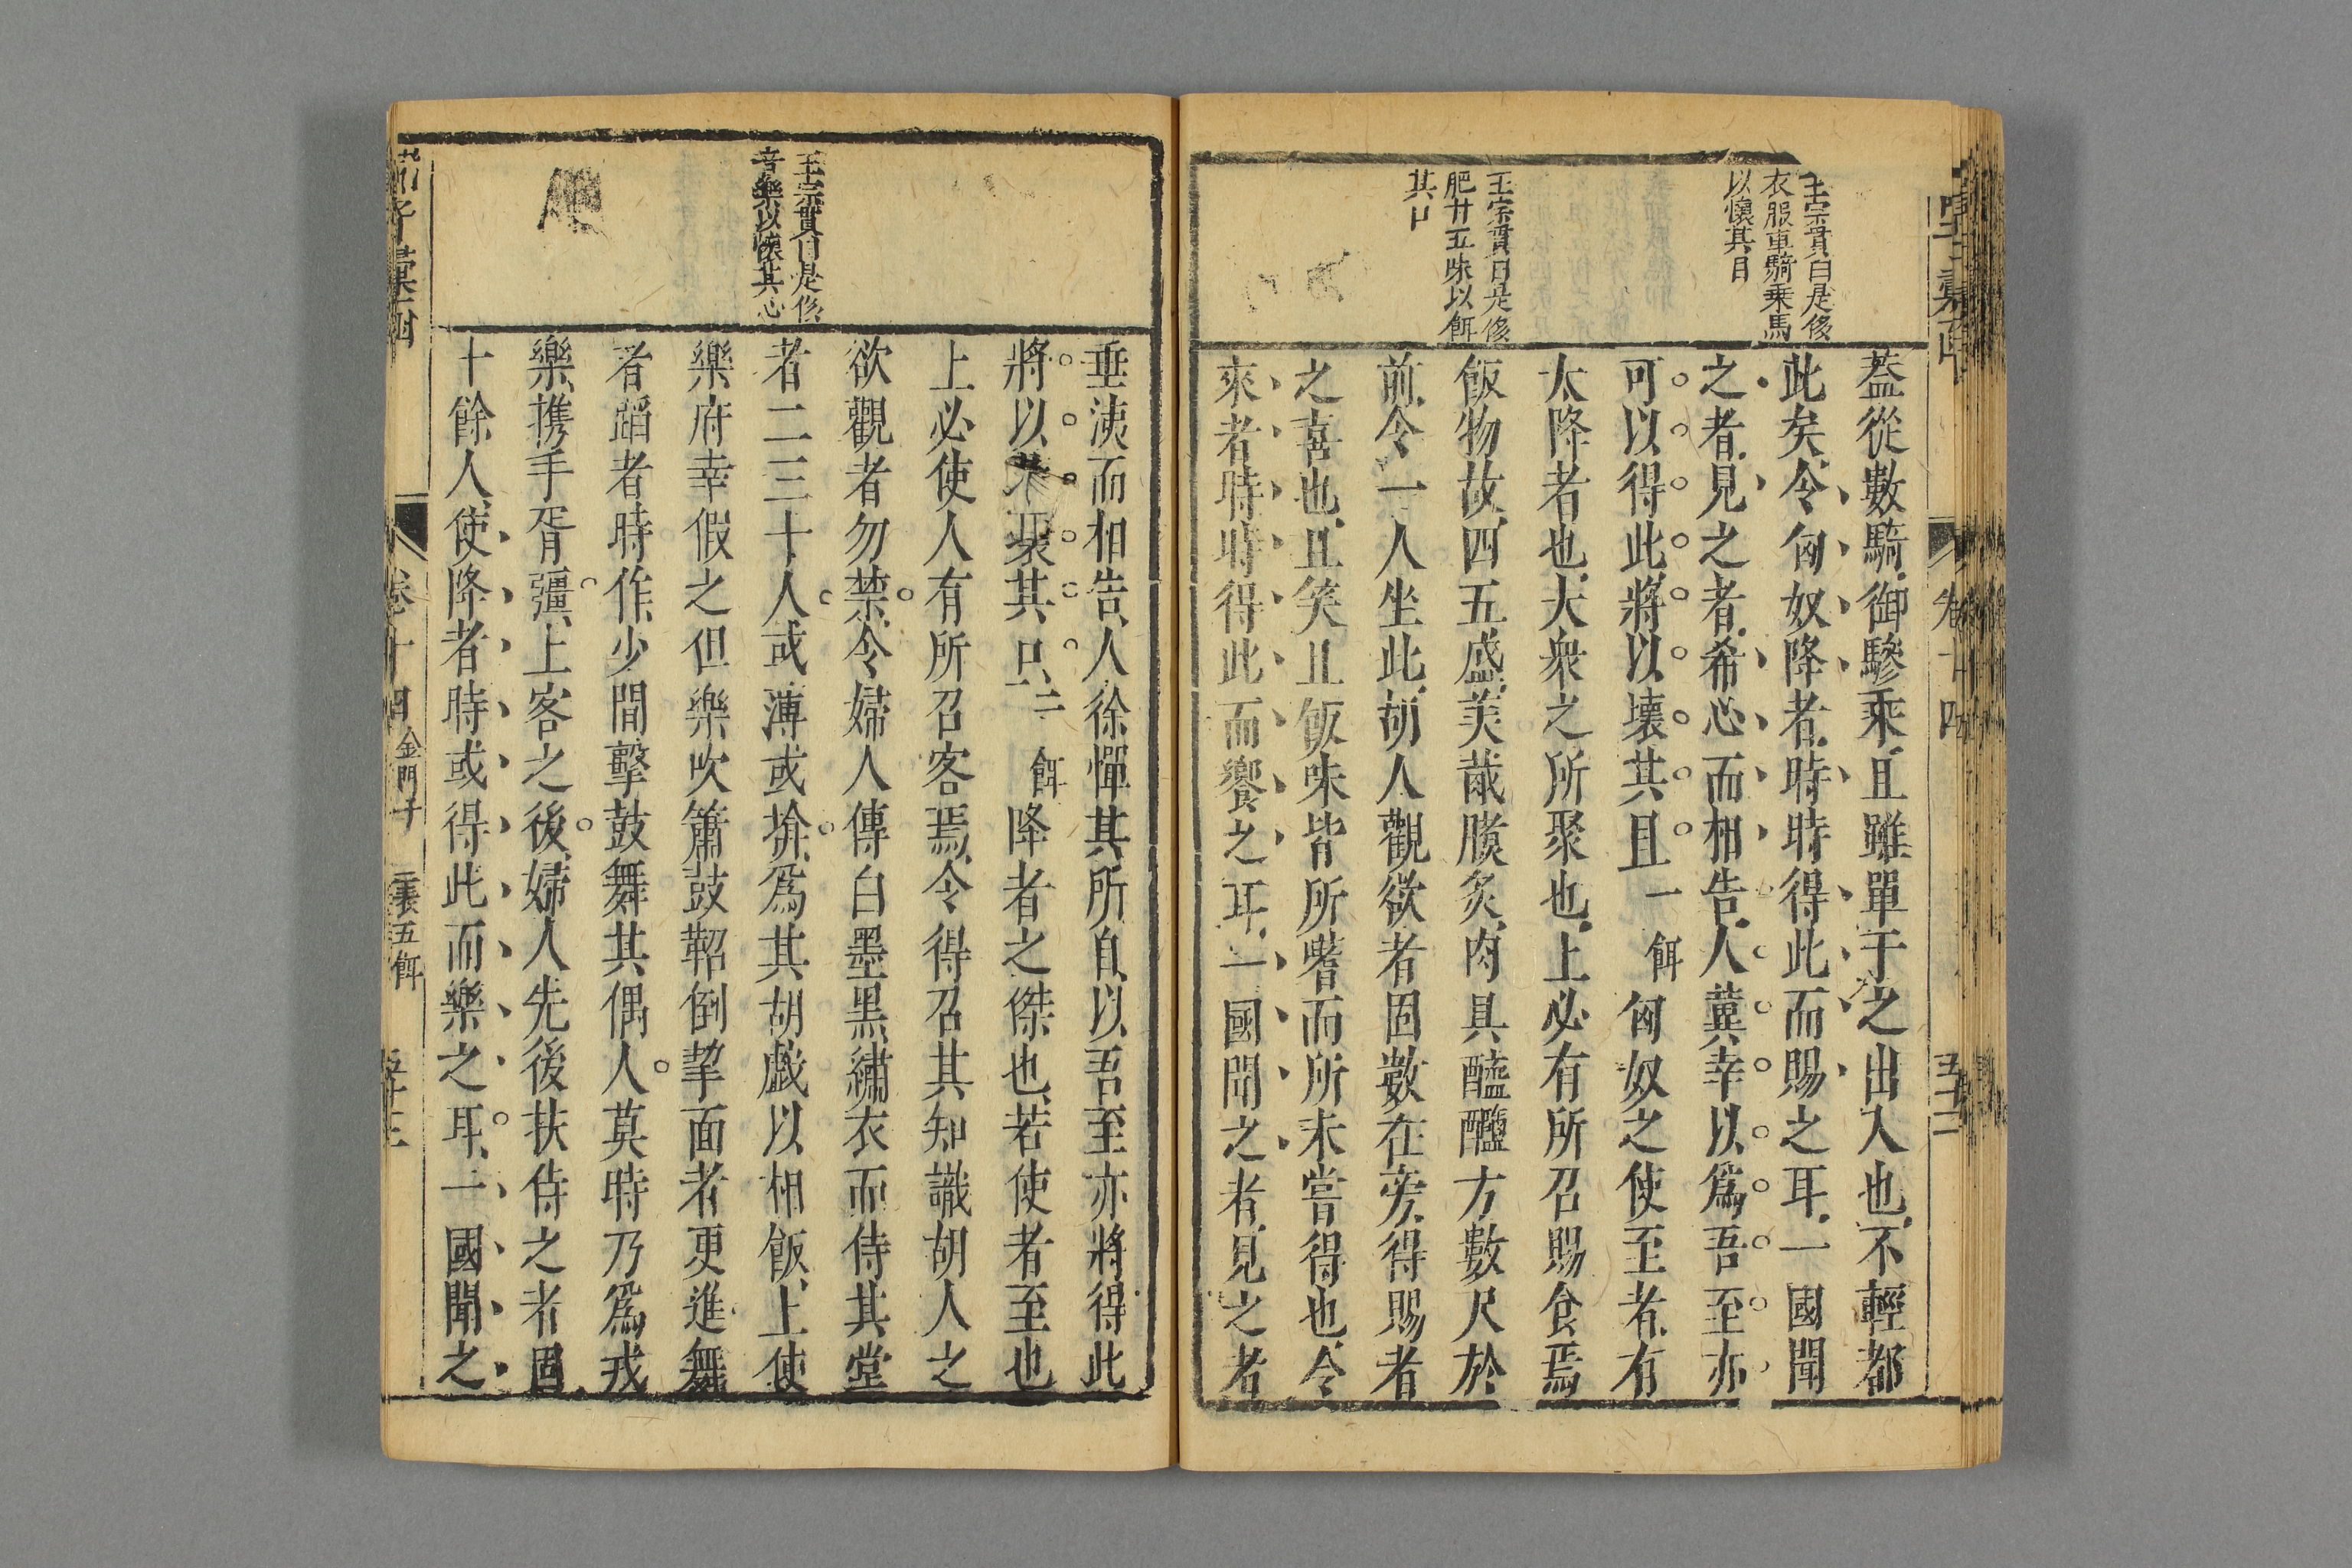 王宗貫曰是侈
衣服車騎乗馬
以懷其目
王宗貫曰是侈
肥甘五味以餌
其口
蓋從數騎御驂乘且雖單于之出入也不輕都
此矣令匈奴降者時時得此而賜之耳一國聞
之者見之者希心而相告人冀幸以爲吾至亦
可以得此將以壞其目一餌匈奴之使至者有
太降者也大衆之所聚也上必有所召賜食焉
飯物故四五盛美胾膹炙肉具醯醢方數尺於
前令一人坐此胡人觀欲者固數在旁得賜者
之喜也且笑且飯味皆所嗜而所未嘗得也令
來者時時得此而饗之耳一國聞之者見之者
卷十四
王宗貫曰是侈
音樂以懷其心
垂洟而相告人徐憚其所自以吾至亦將得此
將以壞其口二餌降者之傑也若使者至也
上必使人有所召客焉令得召其知識胡人之
欲觀者勿禁令婦人傳白墨黑繡衣而侍其堂
者二三十人或薄或揜爲其胡戲以相飯上使
樂府幸假之但樂吹簫鼓鞀倒挈面者更進舞
者蹈者時作少間擊鼓舞其偶人莫時乃爲戎
樂携手胥彊上客之後婦人先後扶侍之者固
十餘人使降者時或得此而樂之耳一國聞之
卷十四 金門子 五餌